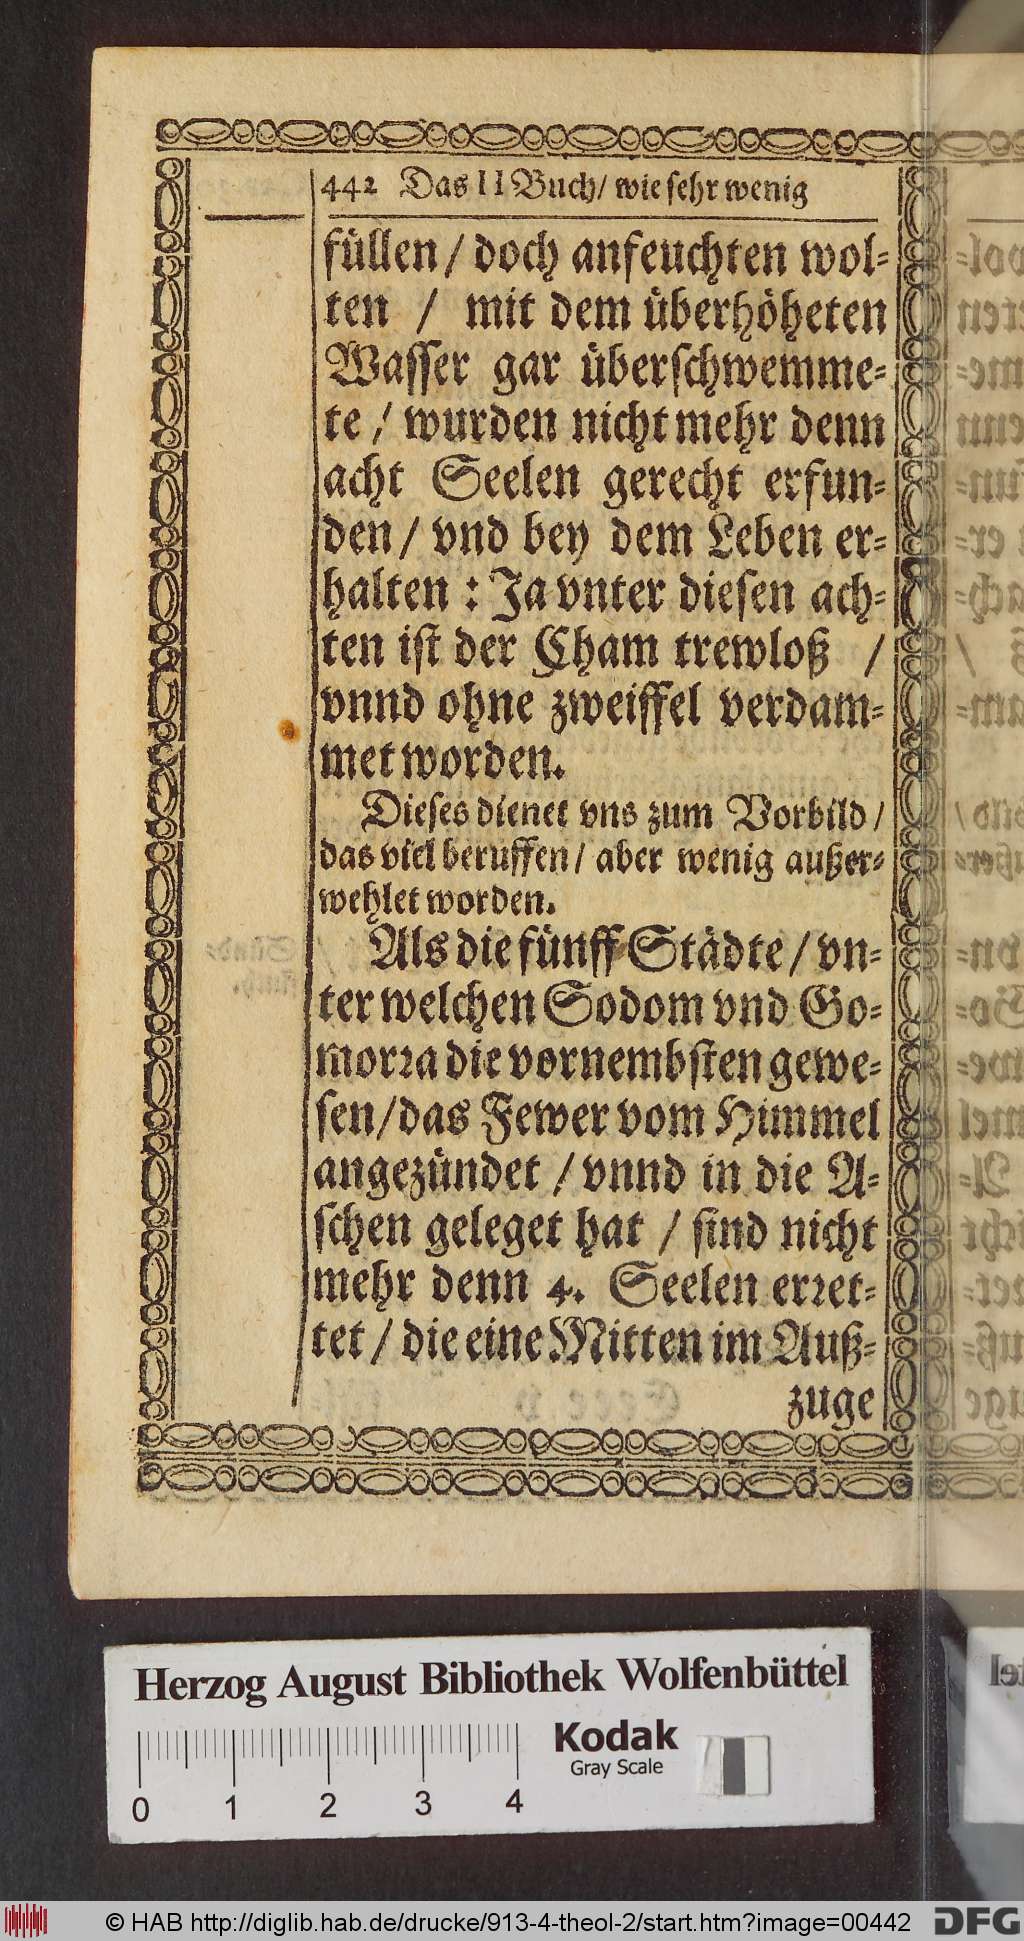 442 Das II Buch/ wie sehr wenig
füllen / doch anfeuchten wol-
ten / mit dem überhöheten
Wasser gar überschwemme-
te / wurden nicht mehr denn
acht Seelen gerecht erfun-
den / vnd bey dem Leben er-
halten : Ja vnter diesen ach-
ten ist der Cham trewloß /
vnnd ohne zweiffel verdam-
met worden.
Dieses dienet vns zum Vorbild /
das viel beruffen / aber wenig außer-
wehlet worden.
Als die fünff Städte / vn-
ter welchen Sodom vnd Go-
morra die vornembsten gewe-
sen / das Fewer vom Himmel
angezündet / vnnd in die A-
schen geleget hat / sind nicht
mehr denn 4. Seelen erret-
tet / die eine Mitten im Auß-
zuge
Herzog August Bibliothek Wolfenbüttel
Kodak
Gray Scale
0 1 2 3 4
© HAB http://diglib.hab.de/drucke/913-4-theol-2/start.htm?image=00442
DFG